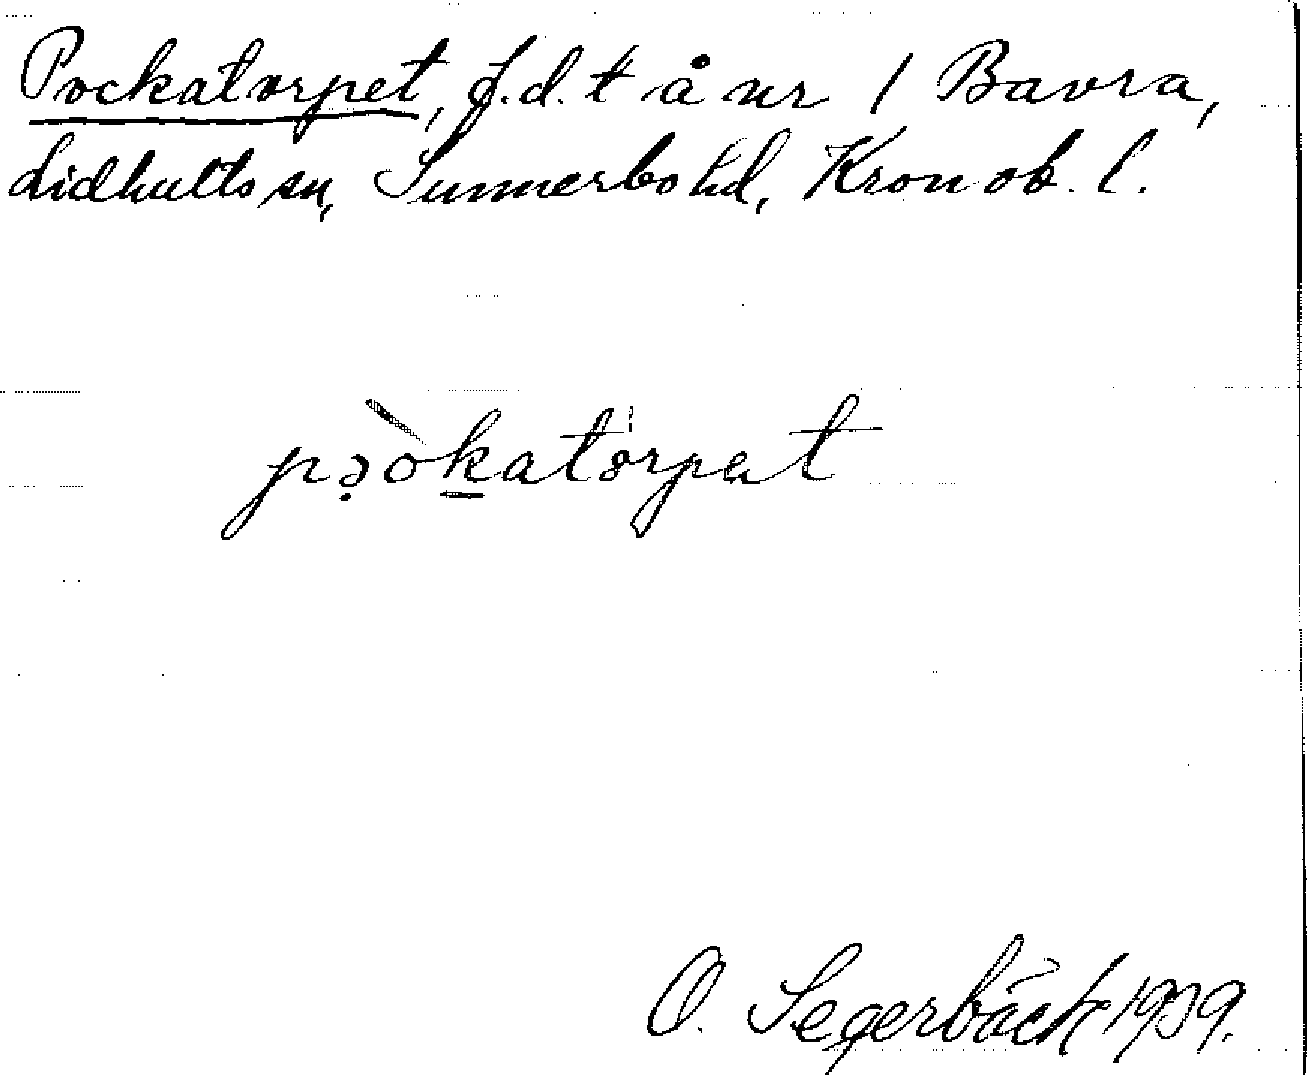 Pockatorpet, f.d. t å nr 1 Bavra,
Lidhults sn, Sunnerbo hd, Kronob. l.
pə̣̀oḵatòrpət
O. Segerbäck 1939.